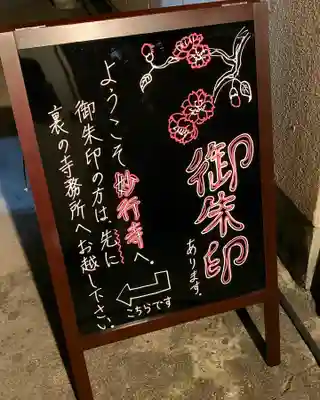 御朱印
あります。
ようこそ妙行寺へ。
御朱印の方は先に
裏の寺務所へお越し下さい。
こちらです